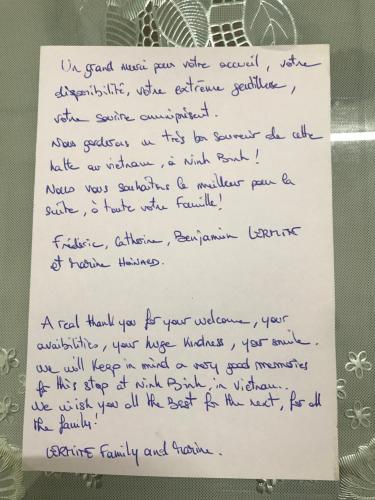 Un grand merci pour votre accueil, votre
disponibilité, votre extrême gentillesse,
votre sourire omniprésent.
Nous garderons un très bon souvenir de cette
halte au vietnam, à Ninh Binh !
Nous vous souhaitons le meilleur pour la
suite, à toute votre famille !
Frédéric, Catherine, Benjamin LERMITE
et Marine
A real thank you for your welcome, your
avaibilities, your huge kindness, your smile.
We will keep in mind a very good memories
for this stop at Ninh Binh, in Vietnam.
We wish you all the Best for the next, for all
the family!
LERMITE Family and Marine.